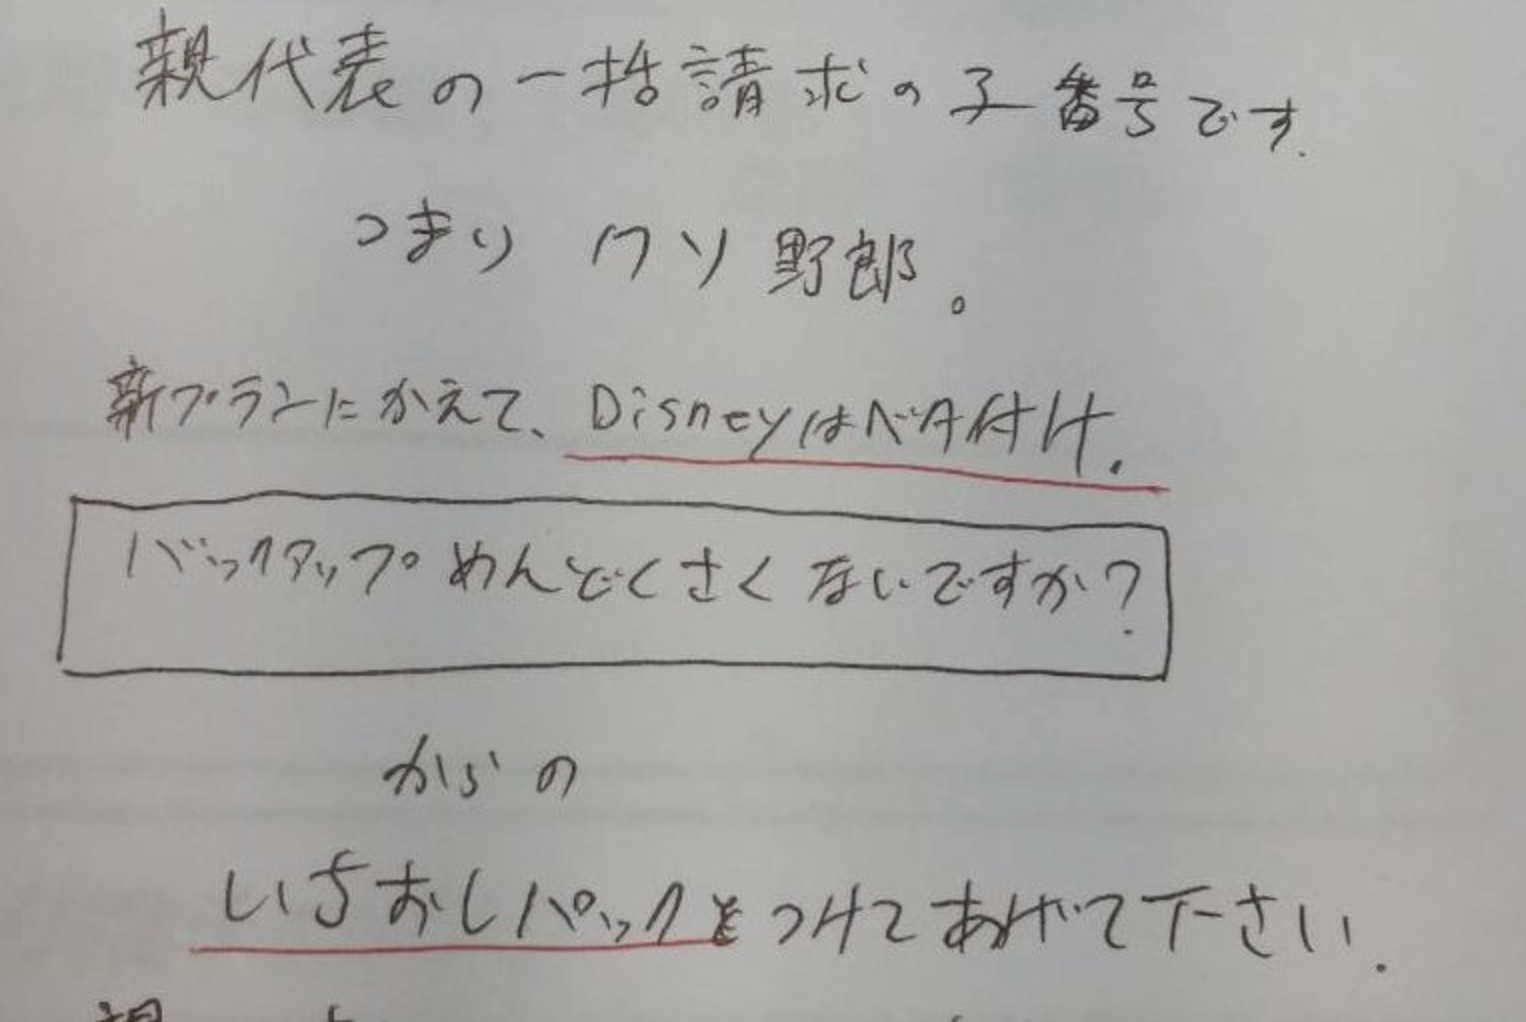 親代表の一括請求の子番号です.
つまり クソ野郎。
新プランにかえて、Disneyはベタ付け.
バックアップ めんどくさく ないですか?
からの
いちおしパックを つけてあげて下さい.
親